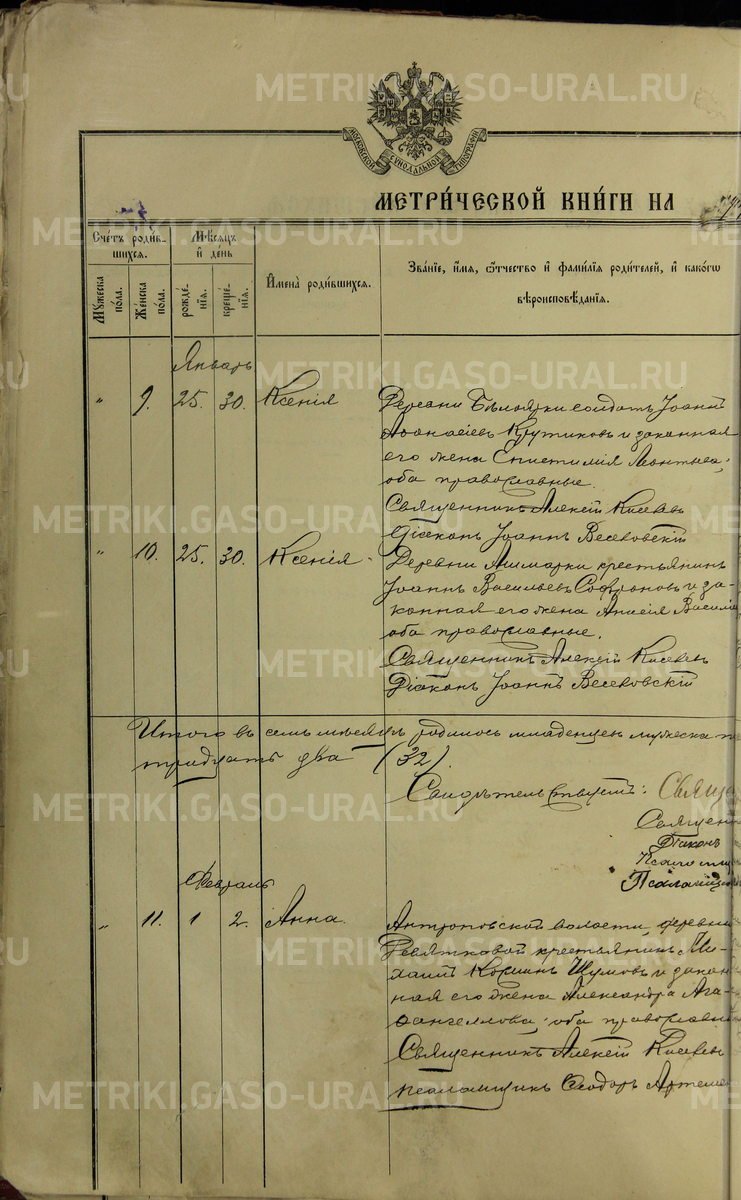 METRIKI.GASO-URAL.RU
МОСКОВСКОЙ СѴНОДАЛЬНОЙ ТИПОГРАФІИ
МЕТРИ́ЧЕСКОЙ КНИ́ГИ НА
Сче́тъ роди́вшихся.
Мѣ́сяцъ и҆ де́нь
Мꙋ́жеска по́ла.
Же́нска по́ла.
рожде́нїѧ.
креще́нїѧ.
И҆мена̀ роди́вшихся.
Зва́нїе, и҆́мя, ѻ҆́тчество и҆ фами́лїя роди́телей, и҆ како́гѡ
вѣроисповѣ́данїя.
Январь
" 9. 25. 30. Ксенія
Деревни Бѣлоярки солдатъ Іоаннъ
Аѳанасіевъ Крутиковъ и законная
его жена Епистимія Леонтьева,
оба православные.
Священникъ Алексій Киселевъ
Діаконъ Іоаннъ Веселовскій
" 10. 25. 30. Ксенія
Деревни крестьянинъ
Іоаннъ Васильевъ Софроновъ и за-
конная его жена Анисія
оба православные.
Священникъ Алексій Киселевъ
Діаконъ Іоаннъ Веселовскій
Итого въ семъ мѣсяцѣ родилось младенцевъ мужеска
тридцать два (32).
Свидѣтельствуемъ:
Діаконъ
Февраль
" 11. 1 2. Анна.
Антроповской волости, деревни
Девятковой крестьянинъ Ми-
хаилъ Шумовъ и закон-
ная его жена Александра Ага-
ѳангелова, оба православные
Священникъ Алексій Киселевъ
Псаломщикъ Ѳеодоръ